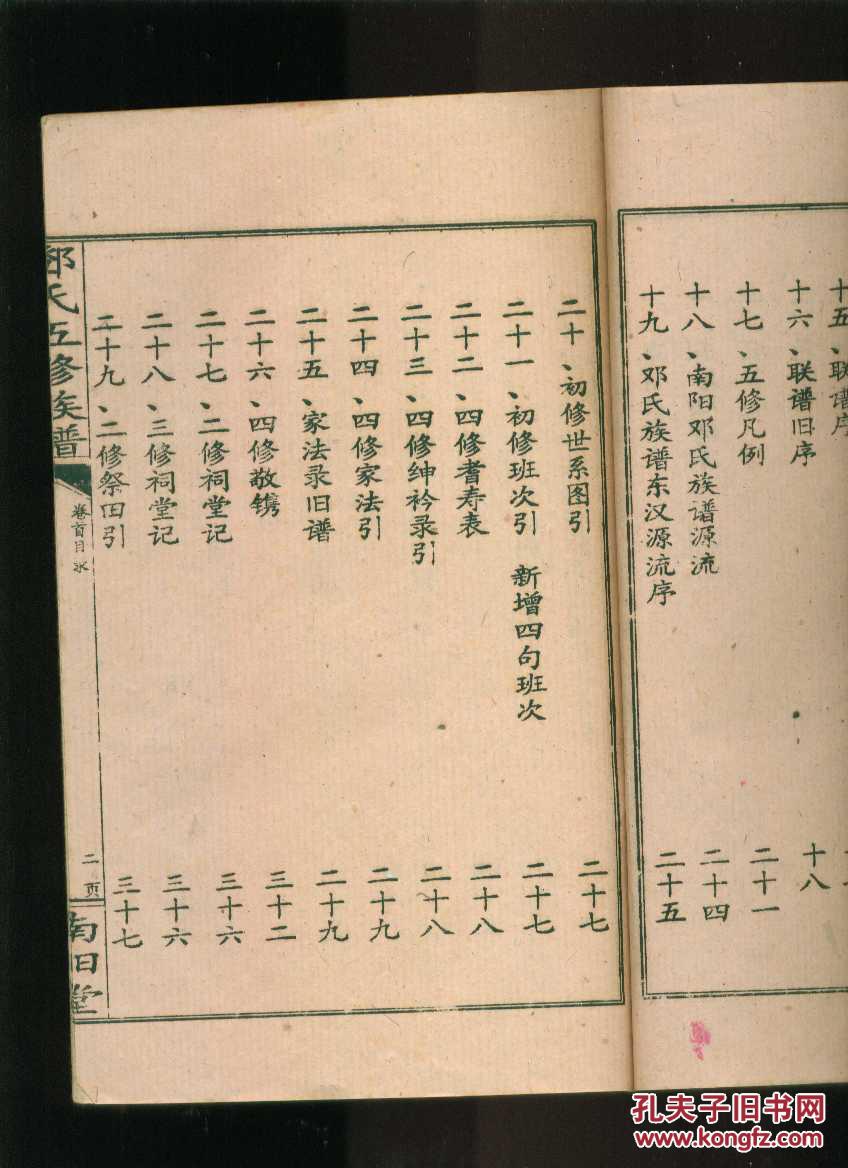 十五、联谱序
十六、联谱旧序 十八
十七、五修凡例 二十一
十八、南阳邓氏族谱源流 二十四
十九、邓氏族谱东汉源流序 二十五
二十、初修世系图引 二十七
二十一、初修班次引 新增四句班次 二十七
二十二、四修耆寿表 二十八
二十三、四修绅衿录引 二十八
二十四、四修家法引 二十九
二十五、家法录旧谱 二十九
二十六、四修敬镌 三十二
二十七、二修祠堂记 三十六
二十八、三修祠堂记 三十六
二十九、二修祭田引 三十七
邓氏五修族谱
卷首目录
二页
南阳堂
孔夫子旧书网
www.kongfz.com